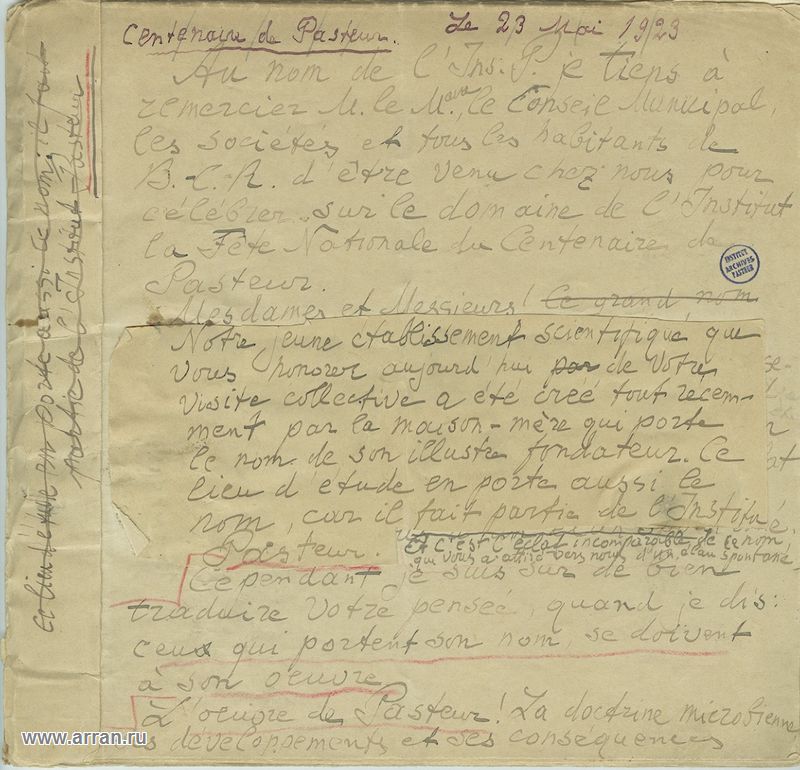 Centenaire de Pasteur. Le 23 Mai 1923
Au nom de l'Ins. P. je tiens à
remercier M. le Maire, le Conseil Municipal,
les sociétés et tous les habitants de
B.-C.-R. d'être venu chez nous pour
célébrer sur le domaine de l'Institut
la Fête Nationale du Centenaire de
Pasteur.
Mesdames et Messieurs! Ce grand nom
Notre jeune etablissement scientifique que
vous honorer aujourd'hui par de votre
visite collective a été créé tout récem-
ment par la maison-mère qui porte
le nom de son illustre fondateur. Ce
lieu d'étude en porte aussi le
nom, car il fait partie de l'Institut
Pasteur. Et c'est l'éclat incomparable de ce nom
qui vous a attiré vers nous d'un élan spontané.
Cependant je suis sur de bien
traduire votre penseé, quand je dis:
ceux qui portent son nom, se doivent
à son oeuvre
L'oeuvre de Pasteur! La doctrine microbienne
ses developpements et ses conséquences
Ce lieu d'étude en porte aussi le nom; il fait
partie de l'Institut Pasteur
INSTITUT
ARCHIVES
PASTEUR
www.arran.ru